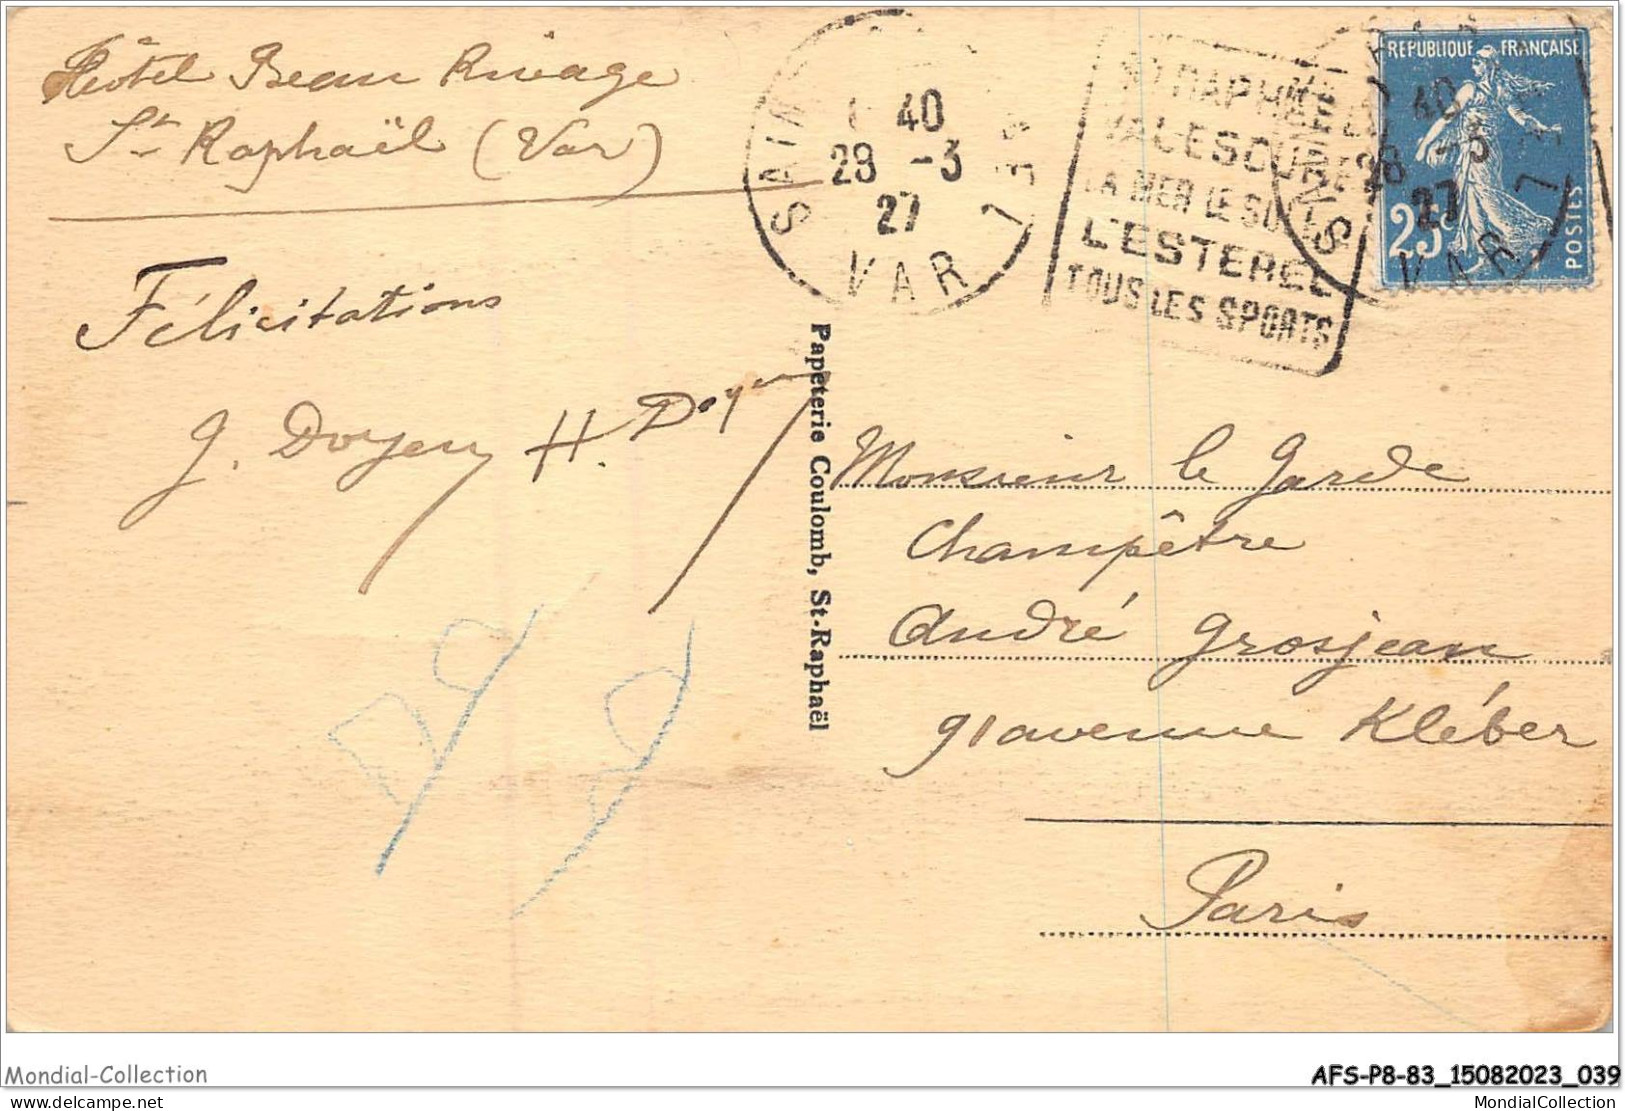 Hôtel Beau Rivage
St Raphaël (Var)
Félicitations
J. Doyen H. Doyen
Papeterie Coulomb, St-Raphaël
40
28 -3
27
VAR
ST RAPHAEL
VALESCURE
LA MER LE SOLEIL
L'ESTEREL
TOUS LES SPORTS
REPUBLIQUE FRANÇAISE
40
28 -3
27
25c
POSTES
VAR
Monsieur le Garde
Champêtre
André Grosjean
91 avenue Kléber
Paris
Mondial-Collection
AFS-P8-83_15082023_039
delcampe.net
MondialCollection